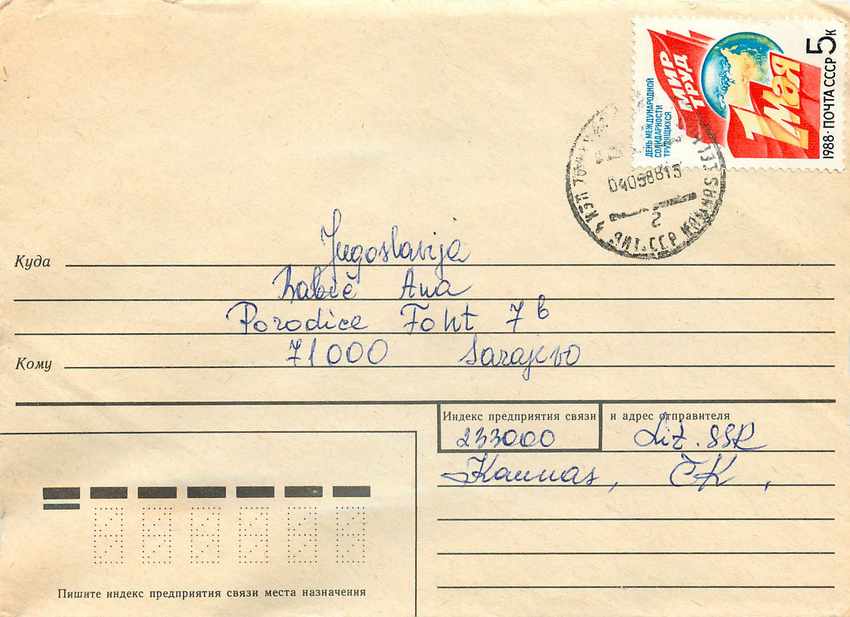 5к
МИР
ТРУД
1 Мая
ДЕНЬ МЕЖДУНАРОДНОЙ
СОЛИДАРНОСТИ
ТРУДЯЩИХСЯ
1988 · ПОЧТА СССР
04058815
2
ЛИТ. ССР KAUNAS
Куда
Jugoslavija
Babić Ana
Porodice Foht 7b
Кому
71000 Sarajevo
Индекс предприятия связи и адрес отправителя
233000 Lit. SSR
Kaunas, ČK,
Пишите индекс предприятия связи места назначения